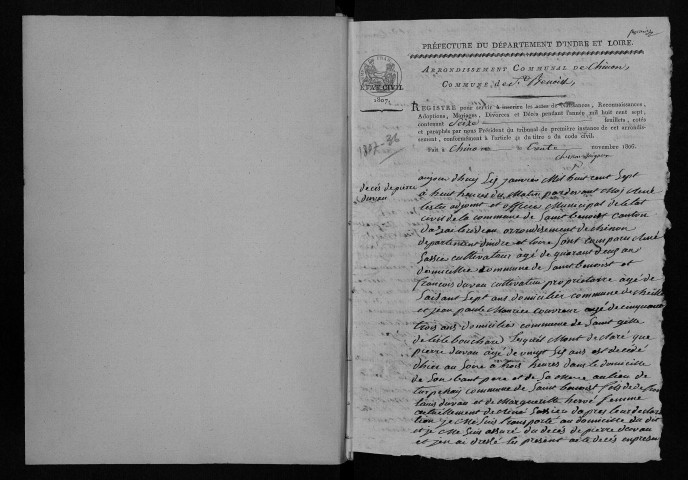 premier
PRÉFECTURE DU DÉPARTEMENT D'INDRE ET LOIRE.
ARRONDISSEMENT COMMUNAL de Chinon,
COMMUNE de St Benoist,
ÉTAT CIVIL
1807.
REGISTRE pour servir à inscrire les actes de Naissances, Reconnaissances,
Adoptions, Mariages, Divorces et Décès pendant l'année mil huit cent sept,
contenant Seize feuillets, cotés
et paraphés par nous Président du tribunal de première instance de cet arrondissement,
conformément à l'article 41 du titre 2 du code civil.
Fait à Chinon le trente novembre 1806.
1807-36
décès de pierre
duvau
aujourdhuy six janvier Mil huit cent Sept
à huit heures du Matin par devant Moi René
adjoint et officier Municipal de letat
civil de la commune de Saint benoist canton
dazai lerideau arrondissement de chinon
departement dindre et loire Sont comparu René
cultivateur agé de quarant deux ans
domicilié commune de Saint benoist et
francois duvau cultivateur proprietaire agé de
Soisant Sept ans domicilié commune de cheillé
et jean Maurice couvreur agé de cinquante
trois ans domicilié commune de Saint gille
de lisle bouchard lesquels Mont declaré que
pierre duvau agé de vingt Six ans est decedé
dhier au Soire à trois heures dans le domicile
de Son beaut pere et de Sa Mere au lieu de
commune de Saint benoist fils de
duvau et de Marguerite hervé femme
actuellement de René dapres leur declara
tion je Me Suis transporté au domicile du dit
et je Me Suis assuré du decès de pierre duvau
et jen ai dressé les present acte